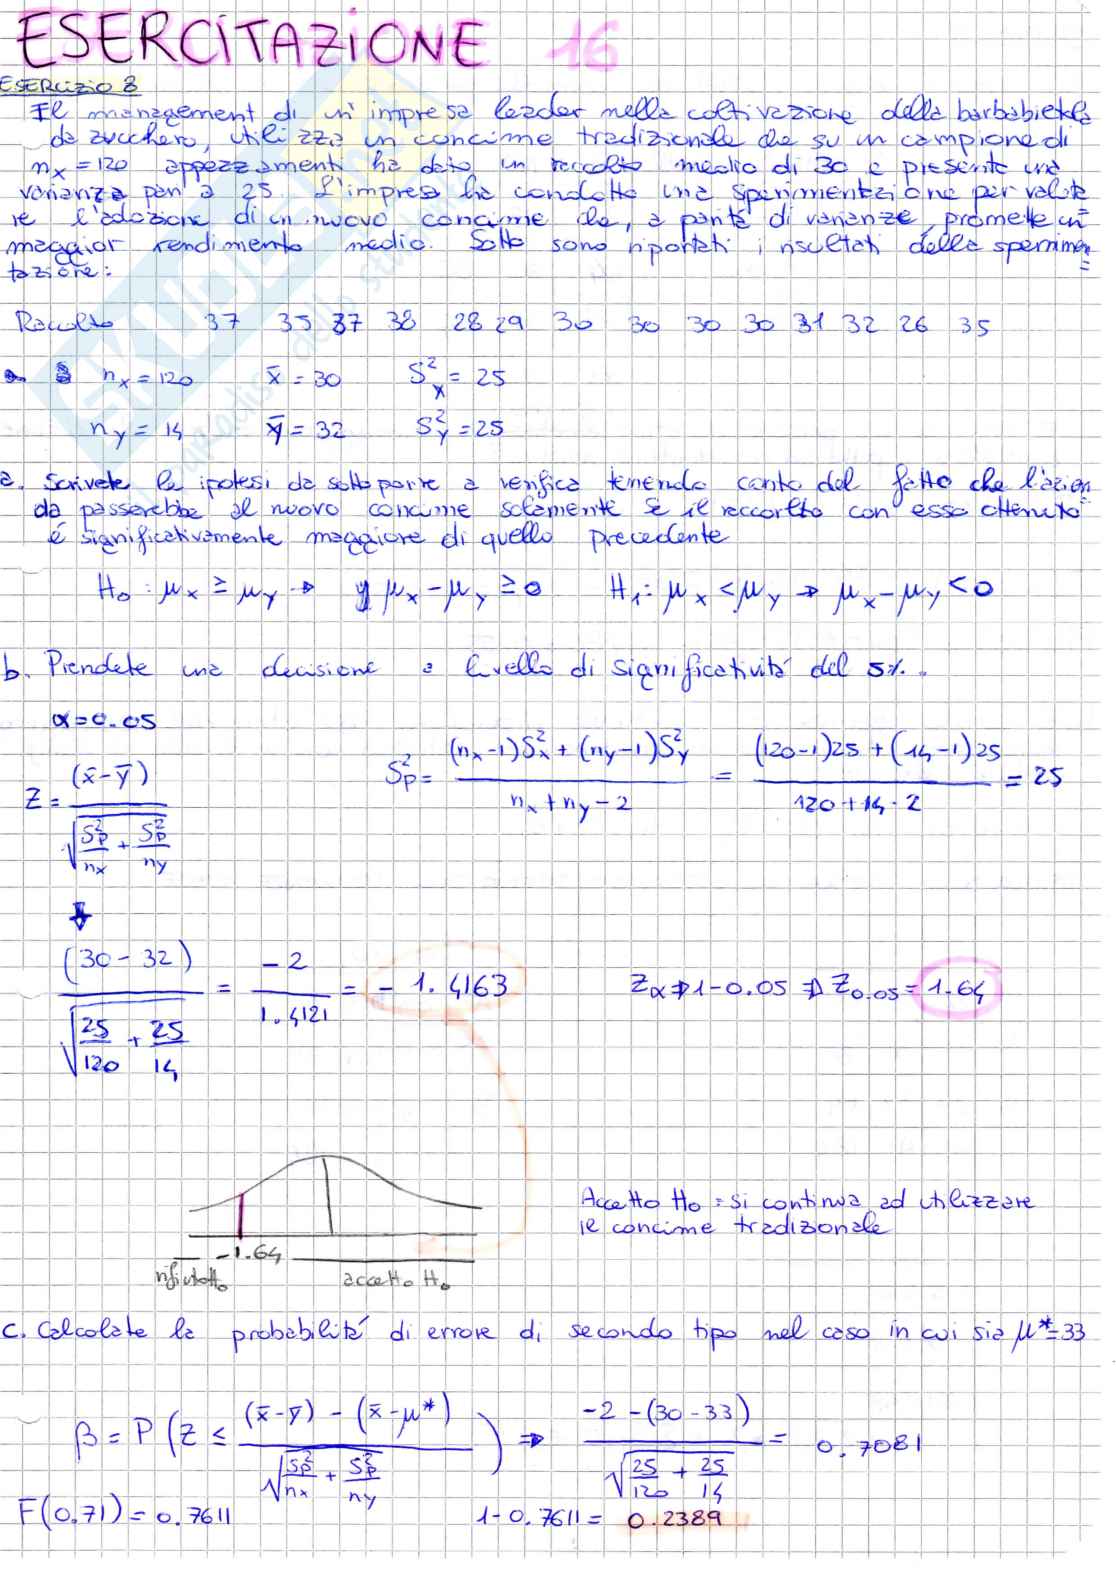 ESERCITAZIONE 16
ESERCIZIO 8
Il management di un' impresa leader nella coltivazione della barbabietola
da zucchero, utilizza un concime tradizionale che su un campione di
nx = 120 appezzamenti ha dato un raccolto medio di 30 e presenta una
varianza pari a 25. L'impresa ha condotto una sperimentazione per valuta
re l'adozione di un nuovo concime che, a parità di varianze, promette un
maggior rendimento medio. Sotto sono riportati i risultati della sperimen
tazione:
Raccolto 37 35 37 38 28 29 30 30 30 30 31 32 26 35
nx = 120 x̄ = 30 S²x = 25
ny = 14 ȳ = 32 S²y = 25
a. Scrivete le ipotesi da sottoporre a verifica tenendo conto del fatto che l'azien
da passerebbe al nuovo concime solamente se il raccolto con esso ottenuto
é significativamente maggiore di quello precedente
H₀ : μx ≥ μy → μx - μy ≥ 0 H₁ : μx < μy → μx - μy < 0
b. Prendete una decisione a livello di significatività del 5%.
α = 0.05
Z = (x̄ - ȳ) / √(S²p/nx + S²p/ny) S²p = ((nx - 1)S²x + (ny - 1)S²y) / (nx + ny - 2) = ((120 - 1)25 + (14 - 1)25) / (120 + 14 - 2) = 25
(30 - 32) / √(25/120 + 25/14) = -2 / 1.4121 = - 1.4163 Zα ⇒ 1 - 0.05 ⇒ Z0.05 = 1.64
Accetto H₀ = si continua ad utilizzare
il concime tradizionale
-1.64
rifiuto H₀ accetto H₀
c. Calcolate la probabilità di errore di secondo tipo nel caso in cui sia μ* = 33
β = P (Z ≤ ((x̄ - ȳ) - (x̄ - μ*)) / √(S²p/nx + S²p/ny)) ⇒ (-2 - (30 - 33)) / √(25/120 + 25/14) = 0.7081
F(0.71) = 0.7611 1 - 0.7611 = 0.2389